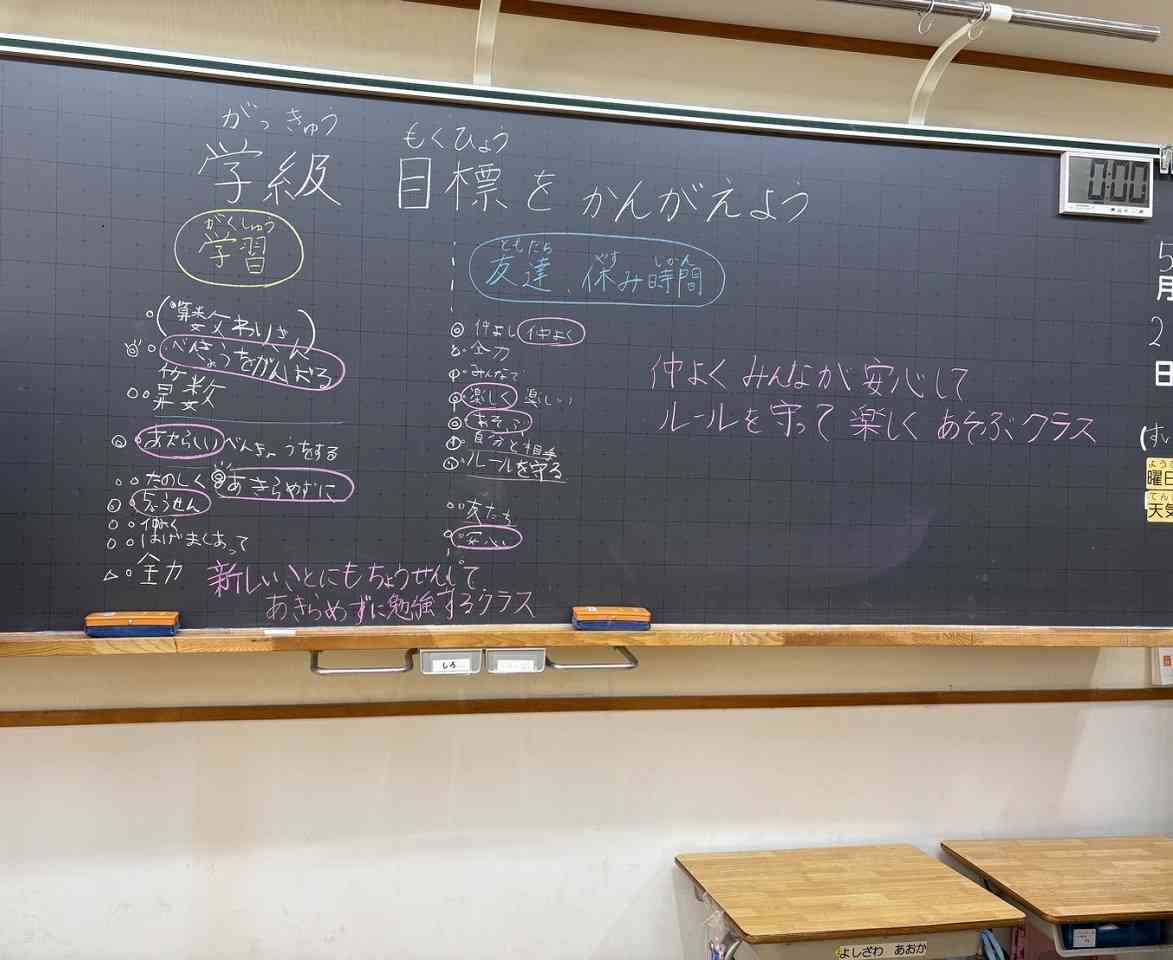 がっきゅう もくひょう
学級 目標を かんがえよう
がくしゅう
学習
(算数 わりざん)
べんきょうをがんばる
算数
あたらしい べんきょうをする
たのしく あきらめずに
ちょうせん
仲よく
はげましあって
全力
新しいことにもちょうせんして
あきらめずに勉強するクラス
ともだち やす じかん
友達、休み時間
仲よし 仲よく
全力
みんなで
楽しく 楽しい
あそぶ
自分と相手
ルールを守る
友だち
安心
仲よく みんなが 安心して
ルールを 守って 楽しく あそぶ クラス
0:00
5
月
2
日
(すい
よう
曜日
てん
天気
しろ
よしざわ あおか